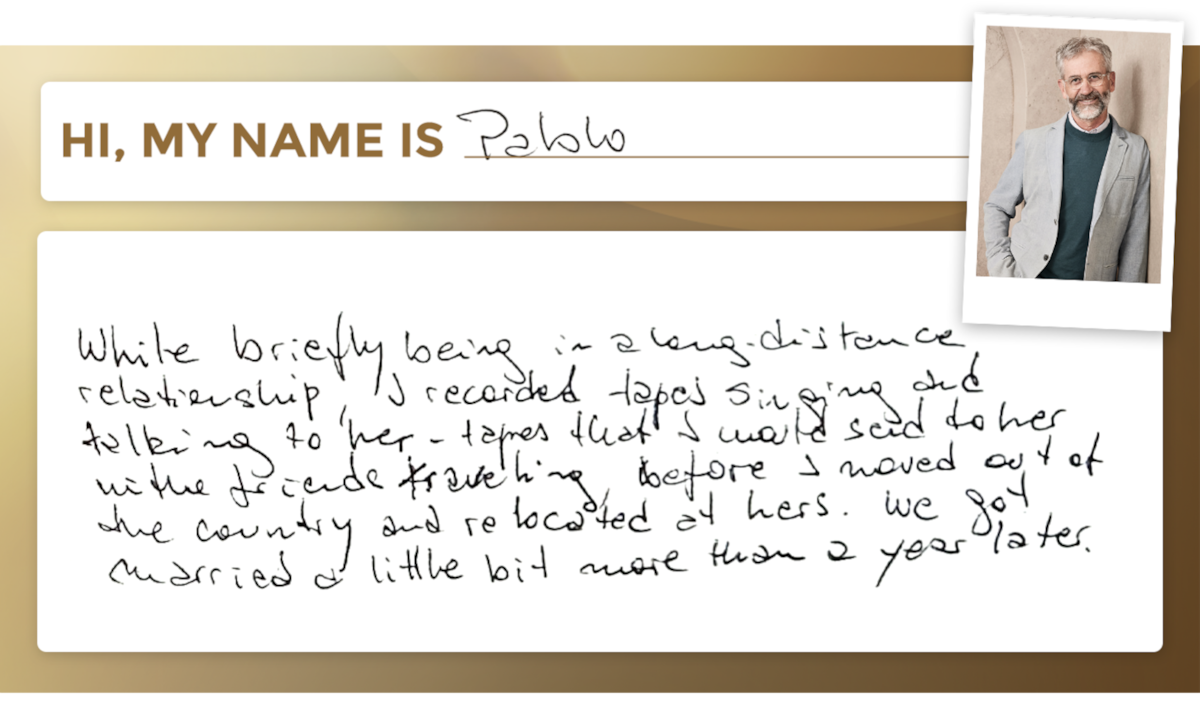 HI, MY NAME IS Pablo
While briefly being in a long-distance
relationship, I recorded tapes singing and
talking to her - tapes that I would send to her
withe friends traveling, before I moved out of
the country and relocated at hers. We got
married a little bit more than a year later.